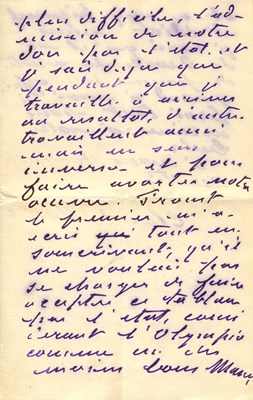 plus difficile, l'ad-
mission de notre
don par l'etat. et
j sais deja que
pendant que j
travaille a arriver
au resultat, d'autre
travaillent aussi
mais en sens
inverse et pour
faire avorter notre
oeuvre. Proust
le premier m'a
ecrit qui tout en
souscrivant, qu'il
ne voulait pas
se charger de faire
accepter ce tableau
par l'etat, consi
derant l'Olympia
comme un des
moins bons Manet